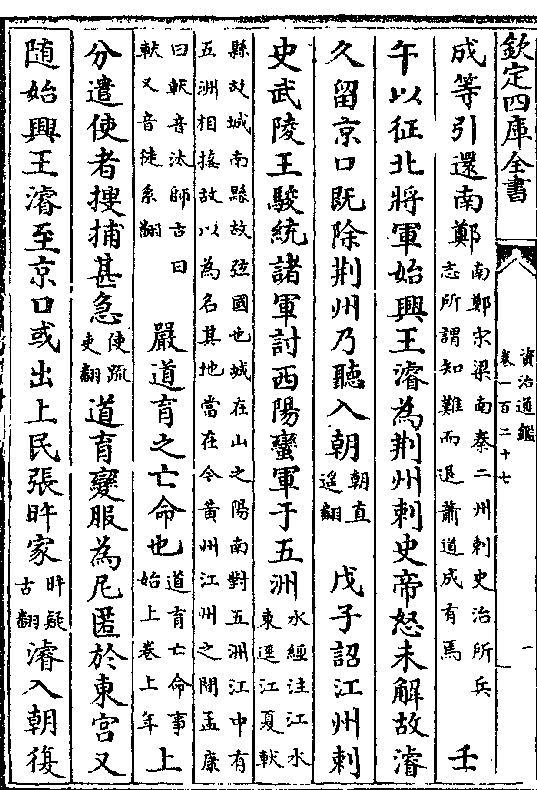 欽定四庫全書
資治通鑑
卷一百二十七
成等引還南鄭
南鄭宋梁南秦二州刺史治所兵
志所謂知難而退蕭道成有焉
壬
午以征北將軍始興王濬為荆州刺史帝怒未解故濬
久留京口既除荆州乃聽入朝
朝直
遥翻
戊子詔江州刺
史武陵王駿統諸軍討西陽蠻軍于五洲
水經注江水
東逕江夏軑
縣故城南縣故弦國也城在山之陽南對五洲江中有
五洲相接故以為名其地當在今黄州江州之間孟康
曰軑音汏師古曰
軑又音徒系翻
嚴道育之亡命也
道育亡命事
始上卷上年
上
分遣使者搜捕甚急
使疏
吏翻
道育變服為尼匿於東宫又
随始興王濬至京口或出上民張旿家
旿疑
古翻
濬入朝復